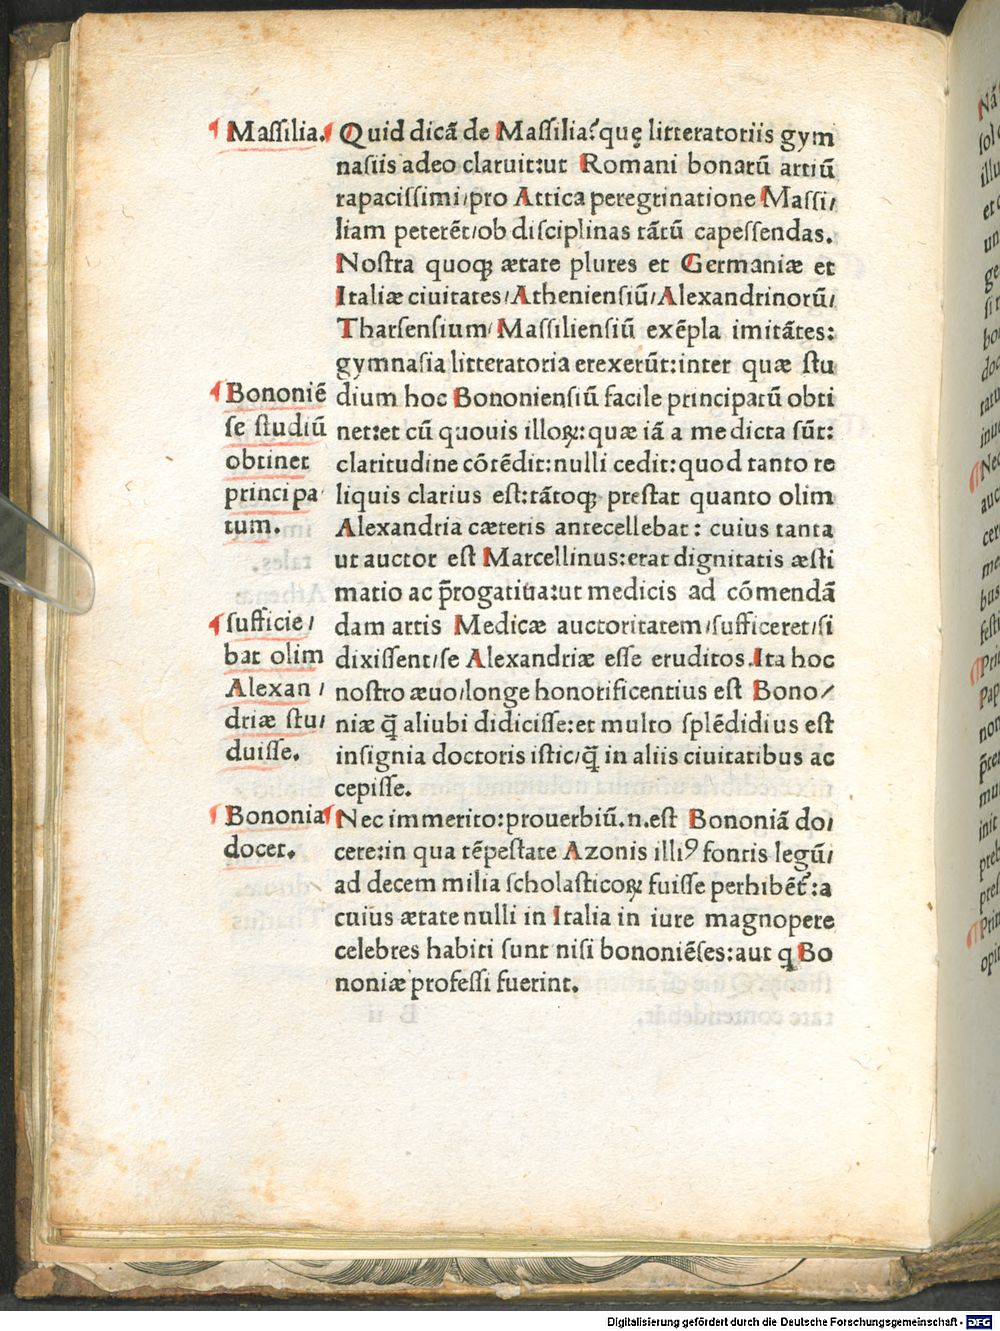 Maſſilia.
Quid dicã de Maſſilia?quę litteratoriis gym
naſiis adeo claruit:ut Romani bonarũ artiũ
rapaciſſimi/pro Attica peregrinatione Maſſi/
liam peterẽt/ob diſciplinas tãtũ capeſſendas.
Noſtra quoqꝫ ætate plures et Germaniæ et
Italiæ ciuitates/Athenienſiũ/Alexandrinorũ/
Tharſenſium/Maſſilienſiũ exẽpla imitãtes:
gymnaſia litteratoria erexerũt:inter quæ ſtu
dium hoc Bononienſiũ facile principatũ obti
net:et cũ quouis illoꝝ:quæ iã a me dicta ſũt:
claritudine cõtẽdit:nulli cedit:quod tanto re
liquis clarius eſt:tãtoqꝫ preſtat quanto olim
Alexandria cæteris antecellebat: cuius tanta
ut auctor eſt Marcellinus:erat dignitatis æſti
matio ac p̃rogatiua:ut medicis ad cõmendã
dam artis Medicæ auctoritatem/ſufficeret/ſi
dixiſſent/ſe Alexandriæ eſſe eruditos.Ita hoc
noſtro æuo/longe honorificentius eſt Bono/
niæ q̃ aliubi didiciſſe:et multo ſplẽdidius eſt
inſignia doctoris iſtic/q̃ in aliis ciuitatibus ac
cepiſſe.
Bononiẽ
ſe ſtudiũ
obtinet
principa
tum.
ſufficie/
bat olim
Alexan/
driæ ſtu/
duiſſe.
Bononia
docet.
Nec immerito:prouerbiũ.n.eſt Bononiã do/
cere:in qua tẽpeſtate Azonis illiꝰ fontis legũ/
ad decem milia ſcholaſticoꝝ fuiſſe perhibẽt̃:a
cuius ætate nulli in Italia in iure magnopere
celebres habiti ſunt niſi bononiẽſes:aut q Bo
noniæ profeſſi fuerint.
Digitalisierung gefördert durch die Deutsche Forschungsgemeinschaft - DFG